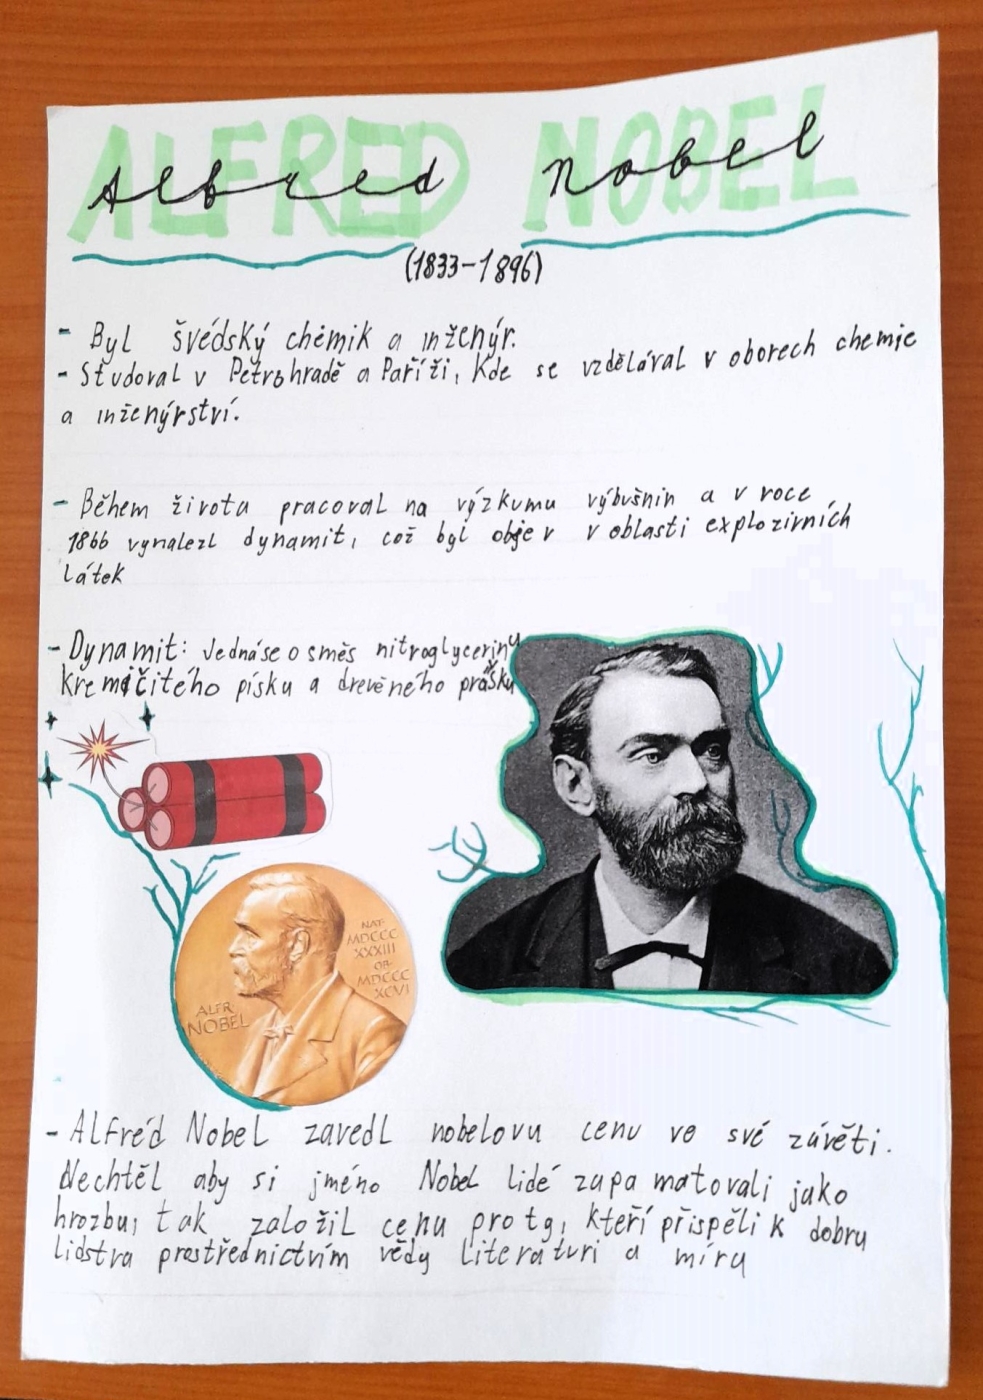 ALFRED NOBEL
Alfred Nobel
(1833-1896)
- Byl švédský chemik a inženýr.
- Studoval v Petrohradě a Paříži, kde se vzdělával v oborech chemie
a inženýrství.
- Během života pracoval na výzkumu výbušnin a v roce
1866 vynalezl dynamit, což byl objev v oblasti explozivních
látek
- Dynamit: Jedná se o směs nitroglycerinu
křemičitého písku a dřevěného prášku
NAT
MDCCC
XXXIII
OB
MDCCC
XCVI
ALFR
NOBEL
- Alfréd Nobel zavedl nobelovu cenu ve své závěti.
Nechtěl aby si jméno Nobel lidé zapamatovali jako
hrozbu, tak založil cenu pro ty, kteří přispěli k dobru
lidstva prostřednictvím vědy literaturi a míru